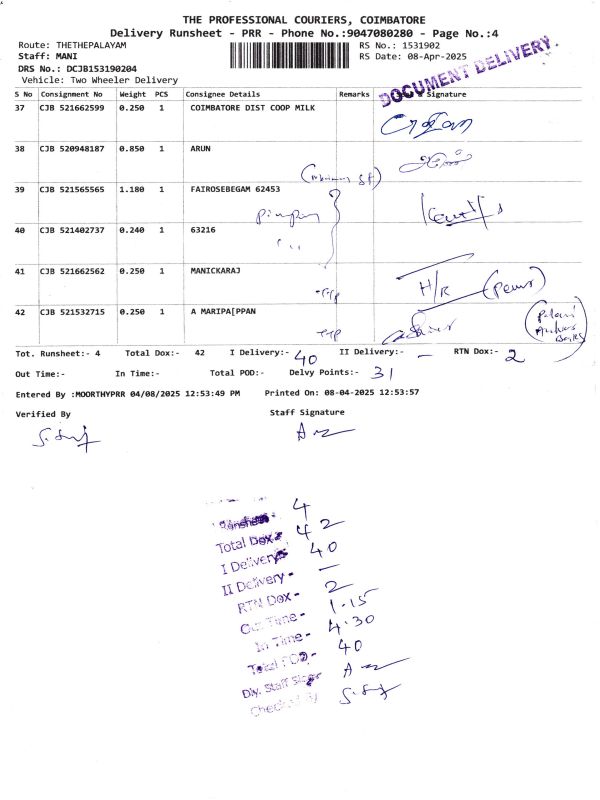 THE PROFESSIONAL COURIERS, COIMBATORE
Delivery Runsheet - PRR - Phone No.:9047080280 - Page No.:4
Route: THETHEPALAYAM
RS No.: 1531902
Staff: MANI
RS Date: 08-Apr-2025
DRS No.: DCJB153190204
Vehicle: Two Wheeler Delivery
DOCUMENT DELIVERY
S No Consignment No Weight PCS Consignee Details Remarks Signature
37 CJB 521662599 0.250 1 COIMBATORE DIST COOP MILK
38 CJB 520948187 0.850 1 ARUN
39 CJB 521565565 1.180 1 FAIROSEBEGAM 62453
40 CJB 521402737 0.240 1 63216
41 CJB 521662562 0.250 1 MANICKARAJ
H/R
42 CJB 521532715 0.250 1 A MARIPA[PPAN
Tot. Runsheet:- 4 Total Dox:- 42 I Delivery:- 40 II Delivery:- – RTN Dox:- 2
Out Time:- In Time:- Total POD:- Delvy Points:- 31
Entered By :MOORTHYPRR 04/08/2025 12:53:49 PM Printed On: 08-04-2025 12:53:57
Verified By Staff Signature
Runsheet - 4
Total Dox - 42
I Delivery - 40
II Delivery - –
RTN Dox - 2
Out Time - 1.15
In Time - 4.30
Total POD - 40
Dly. Staff Sign
Checked By